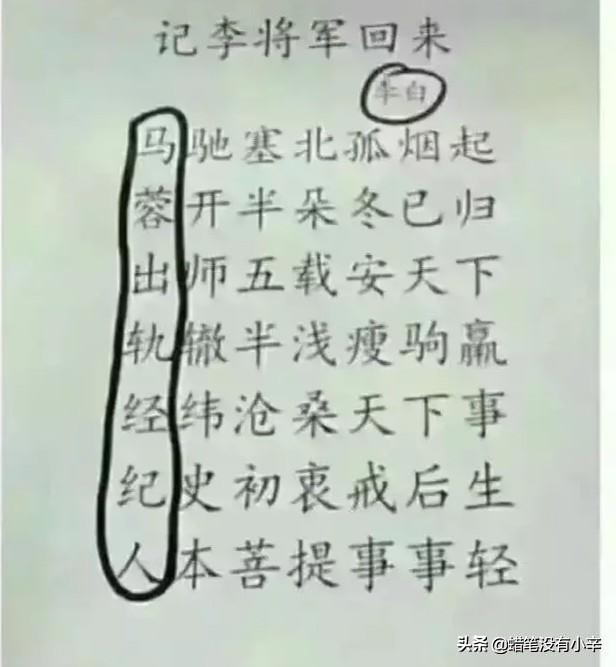 记李将军回来
李白
马驰塞北孤烟起
蓉开半朵冬已归
出师五载安天下
轨辙半浅瘦驹赢
经纬沧桑天下事
纪史初衷戒后生
人本菩提事事轻
头条 @蜡笔没有小辛